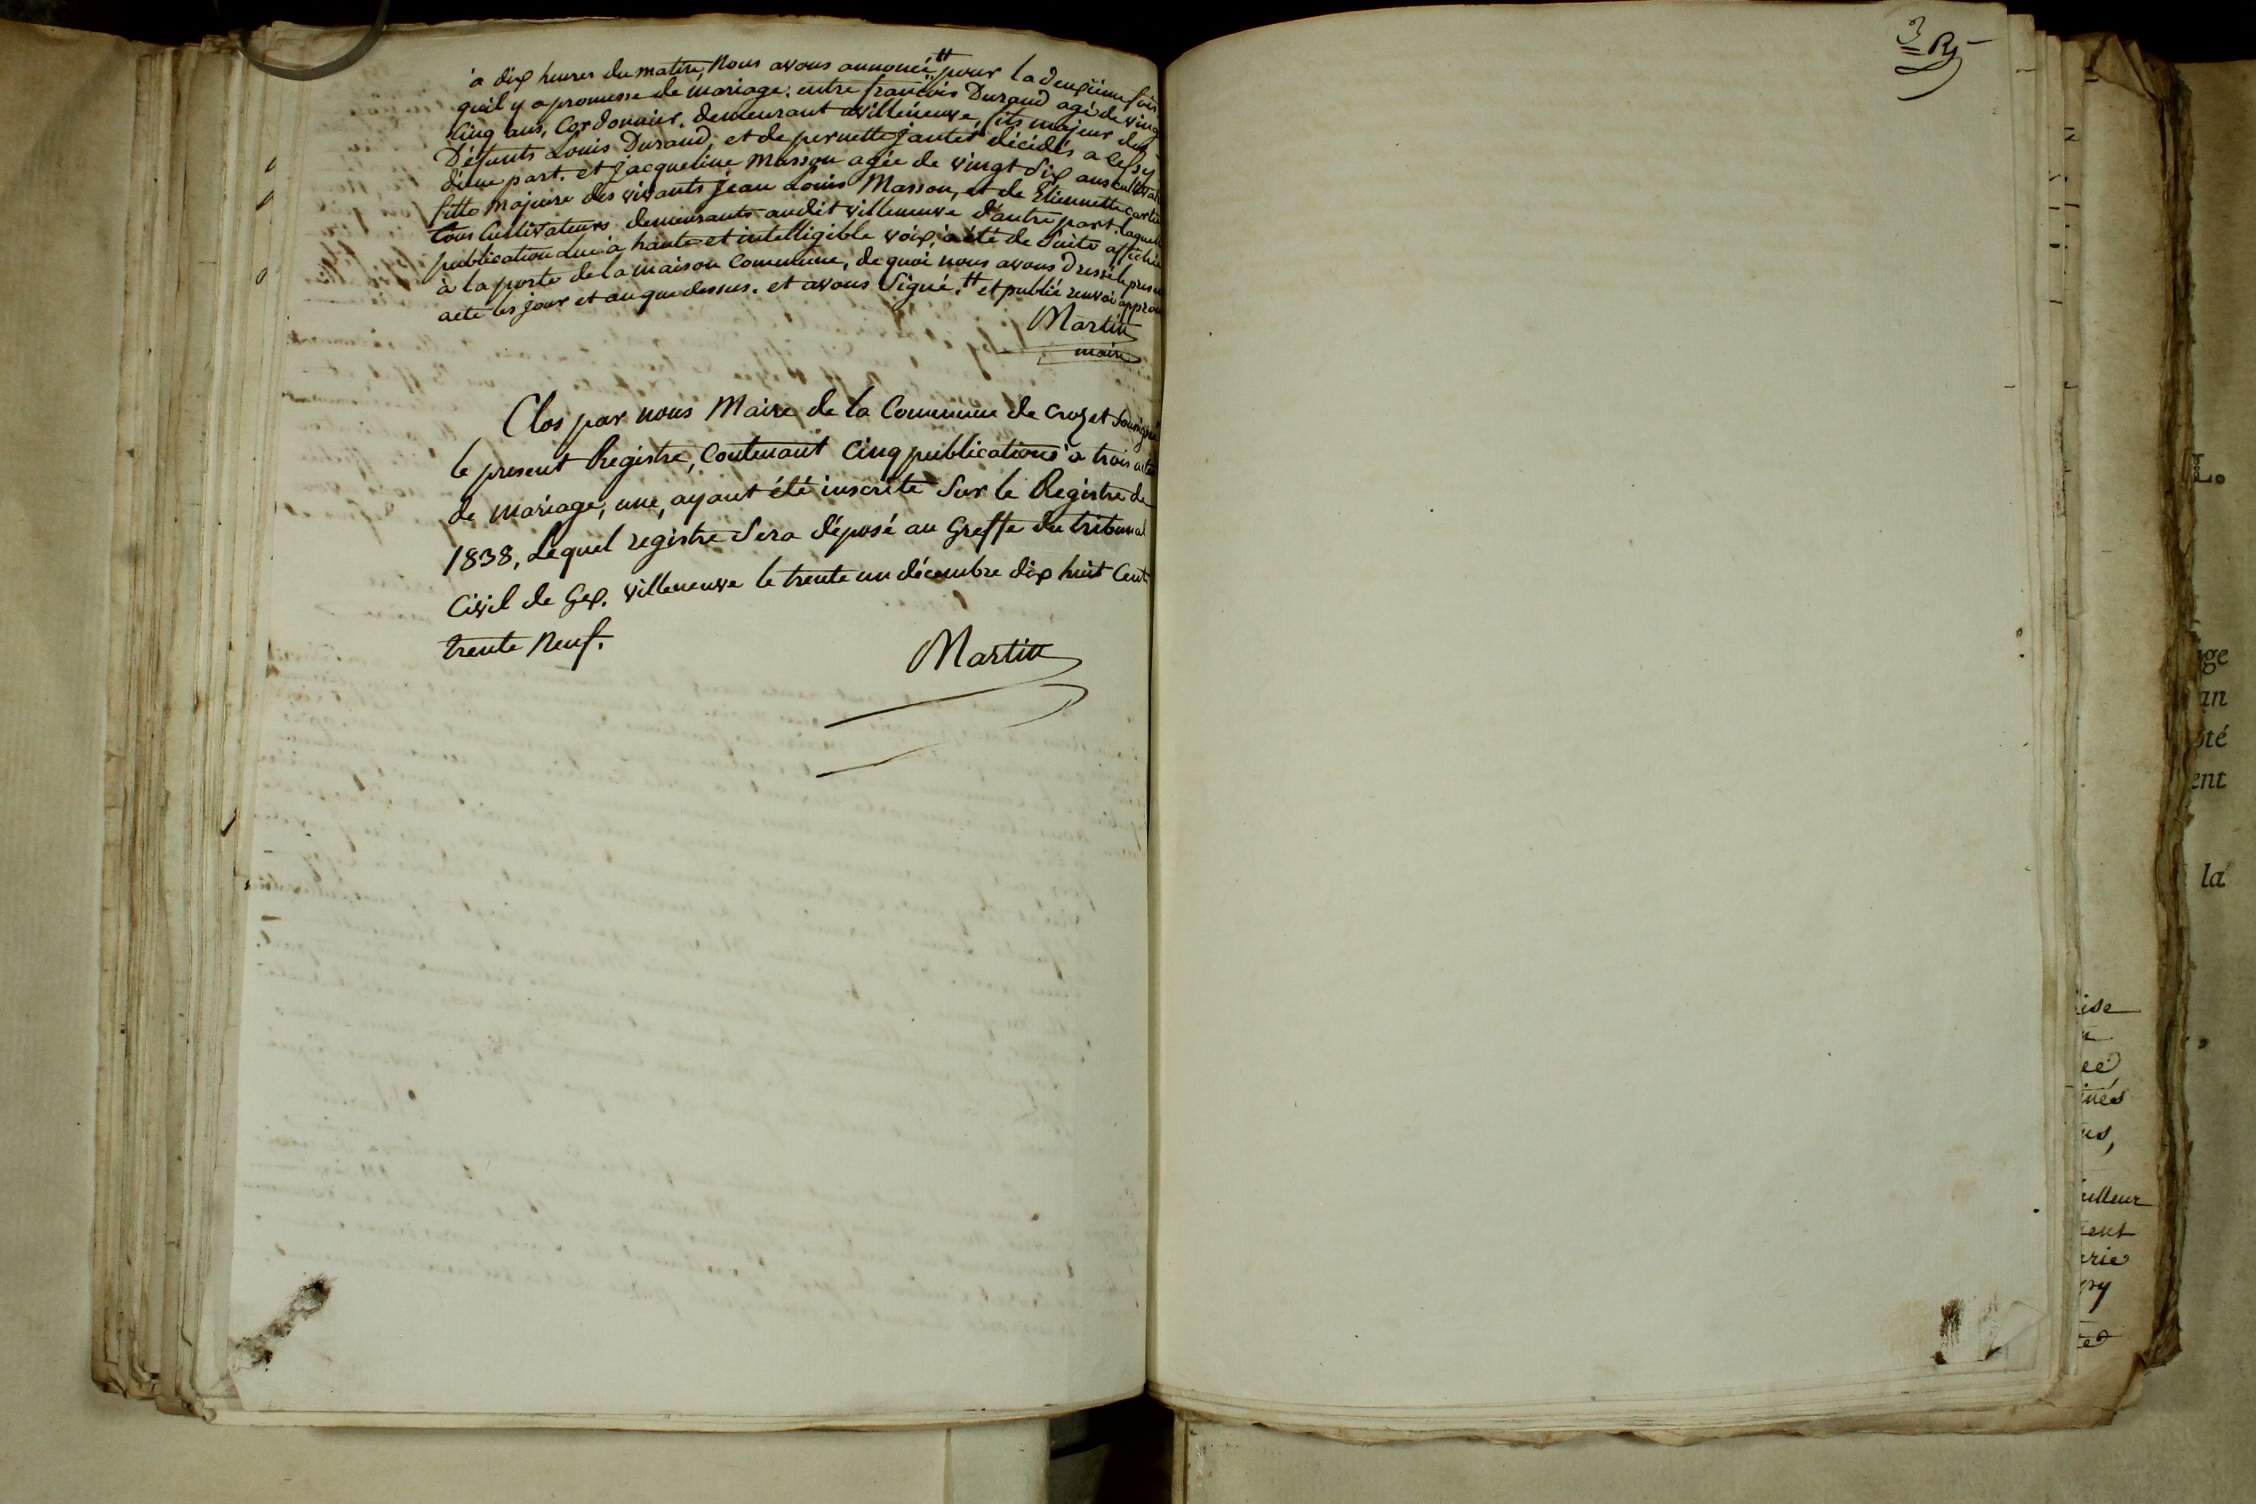 à dix heures du matin, Nous avons annoncé # pour la deuxième fois
qu'il y a promesse de mariage. entre françois Durand agé de ving
Cinq ans, Cordonnier. demeurant a villeneuve, fils majeur des
Défunts Louis Durand, et de pernette jantet décédés a Cessy
d'une part. et jacqueline Masson agée de vingt Six ans cultivat
fille Majeure des vivants jean Louis Masson, et de Etiennette carti
tous Cultivateurs demeurants audit villeneuve d'autre part. laquel
publication lue à haute et intelligible voix, a été de Suite affichée
à la porte de la maison Commune, de quoi nous avons dressé le prese
acte les jour et an que dessus. et avons Signé. # et publié renvoi approu
Martin
maire
Clos par nous Maire de la Commune de Crozet Soussigné
le present Registre, Contenant Cinq publications à trois actes
de mariage, une, ayant été inscrite Sur le Registre de
1838, Lequel registre Sera déposé au Greffe du tribunal
Civil de Gex. villeneuve le trente un décembre dix huit Cent
trente Neuf.
Martin
3
ge
an
oté
ent
la
ise
ee
inés
us,
ailleur
ent
arie